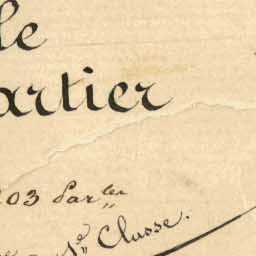 le
artier
203 Par^les
1^e Classe.